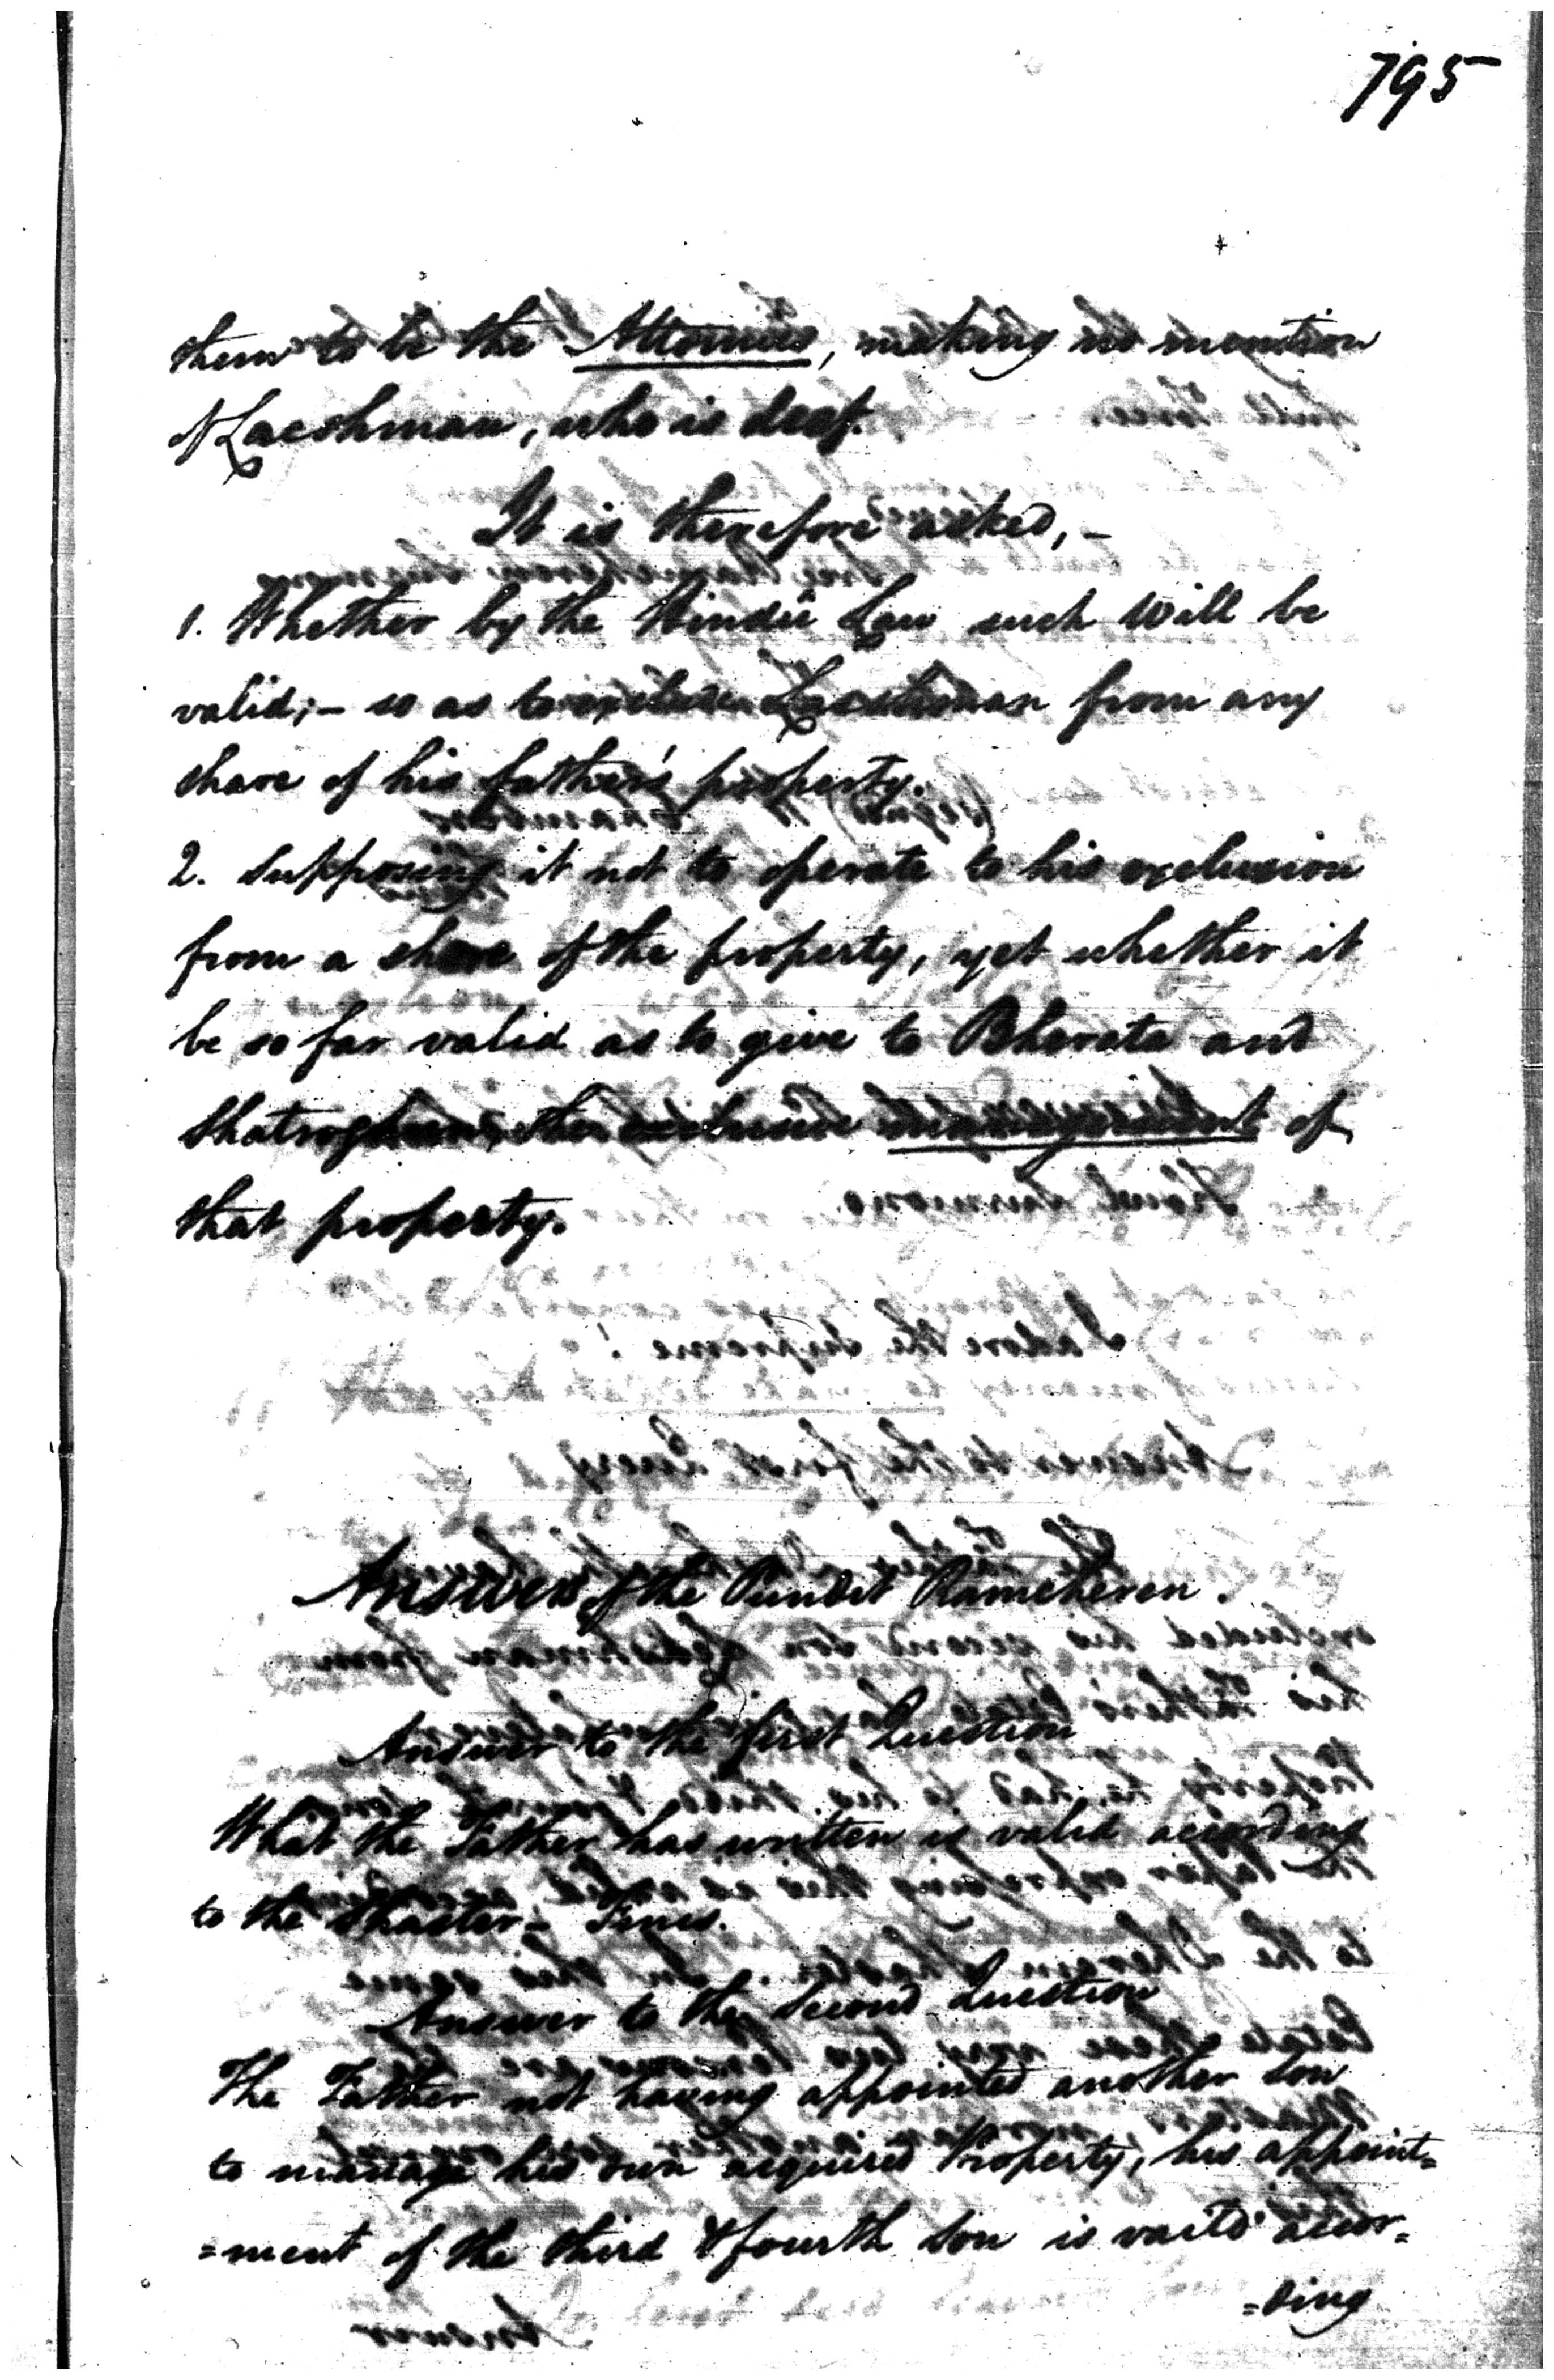 795
them to be the Attornies, making no mention
of Lacshman, who is deaf.
It is therefore asked, -
1. Whether by the Hindû Law such Will be
valid; - so as to exclude Lacshman from any
share of his father's property.
2. Supposing it not to operate to his exclusion
from a share of the property, yet whether it
be so far valid as to give to Bharata and
Shatroghana, the exclusive management of
that property.
Answers of the Pundit Ramcheren.
Answer to the first Question
What the Father has written is valid according
to the Shaster -
Answer to the Second Question
The Father not having appointed another Son
to manage his own acquired Property, his appoint=
=ment of the third & fourth Son is valid accor=
=ding